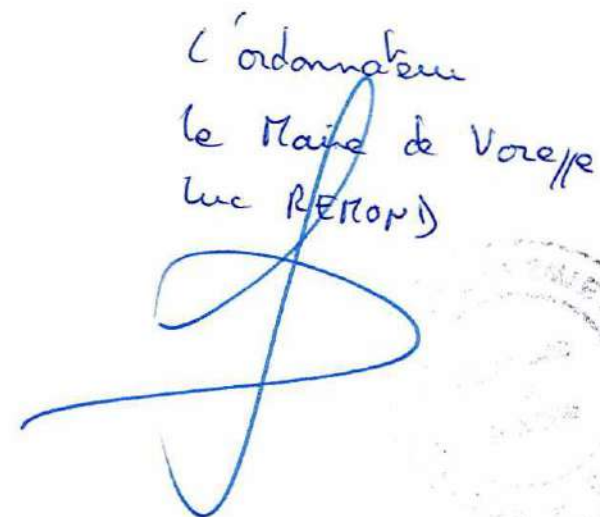 L'ordonnateur
le Maire de Voreppe
Luc REMOND